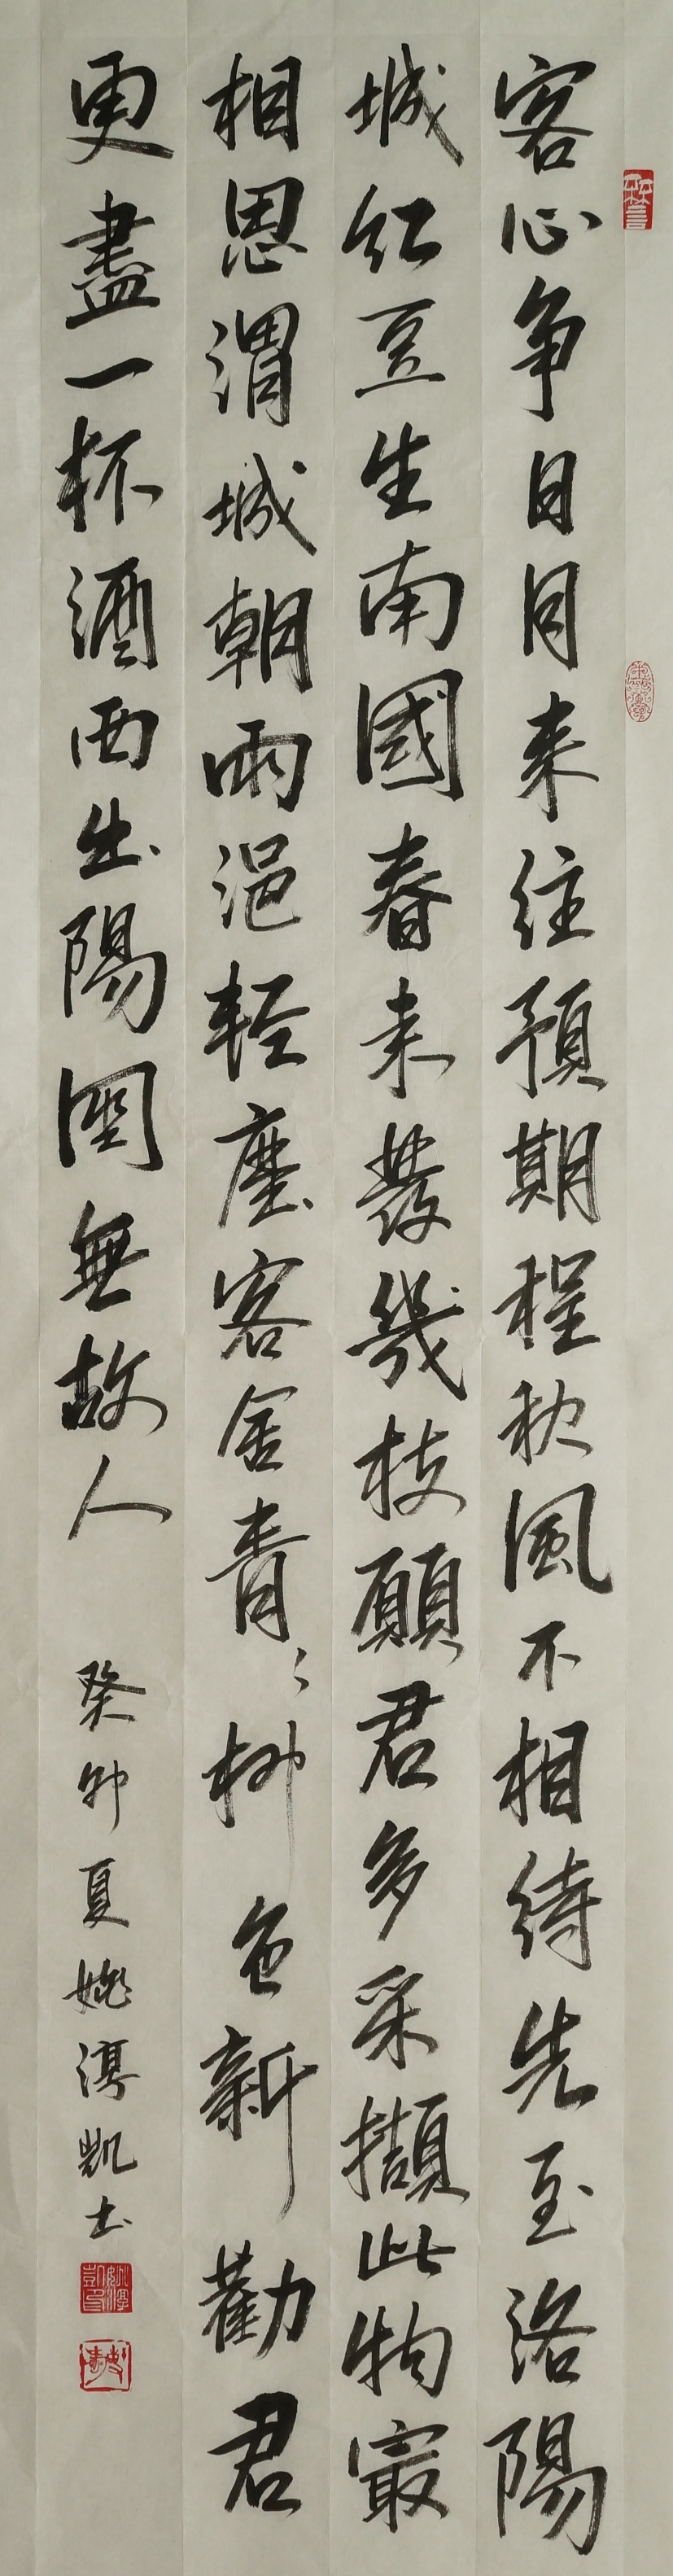 客心争日月来往預期程秋風不相待先至洛陽
城紅豆生南國春来發幾枝願君多采擷此物最
相思渭城朝雨浥輕塵客舍青〻柳色新勸君
更盡一杯酒西出陽関無故人
癸卯夏姚淳凱書